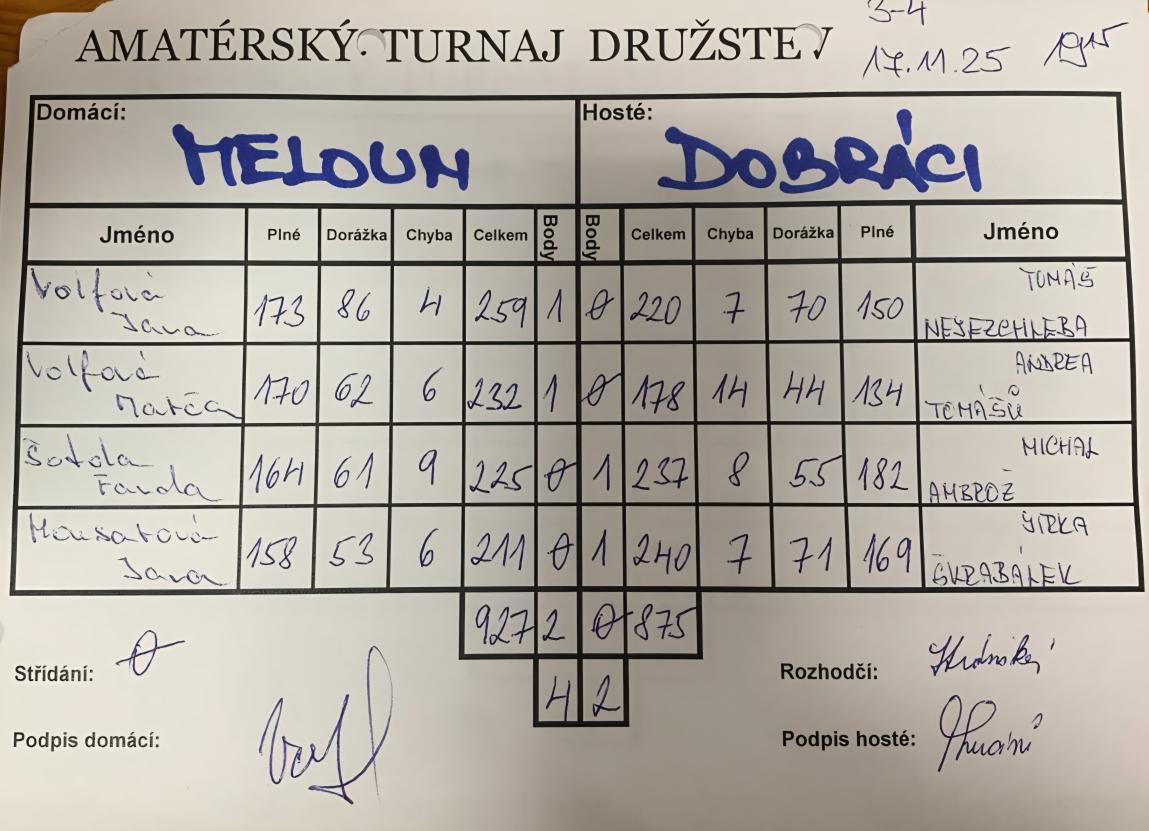 3-4
AMATÉRSKÝ TURNAJ DRUŽSTEV
17.11.25 1915
Domácí: Hosté:
MELOUN DOBRÁCI
Jméno Plné Dorážka Chyba Celkem Body Body Celkem Chyba Dorážka Plné Jméno
Volfová TOMÁŠ
Jana 173 86 4 259 1 0 220 7 70 150 NESEZCHLEBA
Volfová ANDREA
Marča 170 62 6 232 1 0 178 14 44 134 TOMÁŠŮ
Šotola MICHAL
Fanda 164 61 9 225 0 1 237 8 55 182 AMBROŽ
JIRKA
Jana 158 53 6 211 0 1 240 7 71 169 ŠKRABÁLEK
927 2 0 875
Střídání: 0 Rozhodčí:
4 2
Podpis domácí: Podpis hosté: